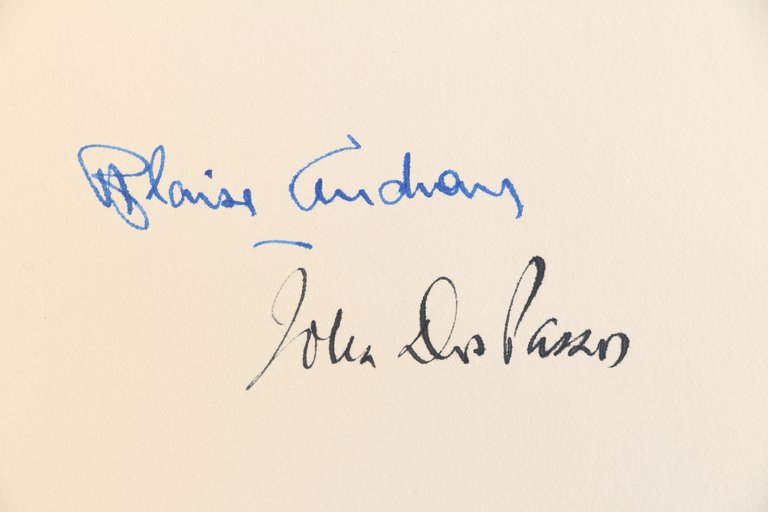 Blaise Cendrars
John Dos Passos